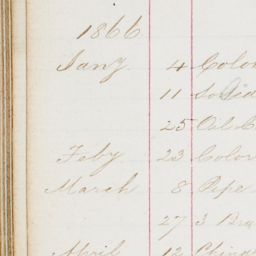 1866
Jany 4 Color
11 Solid
25 Oil C
Feby 23 Color
March 8 Pipe
27 3 Bra
April 12 China